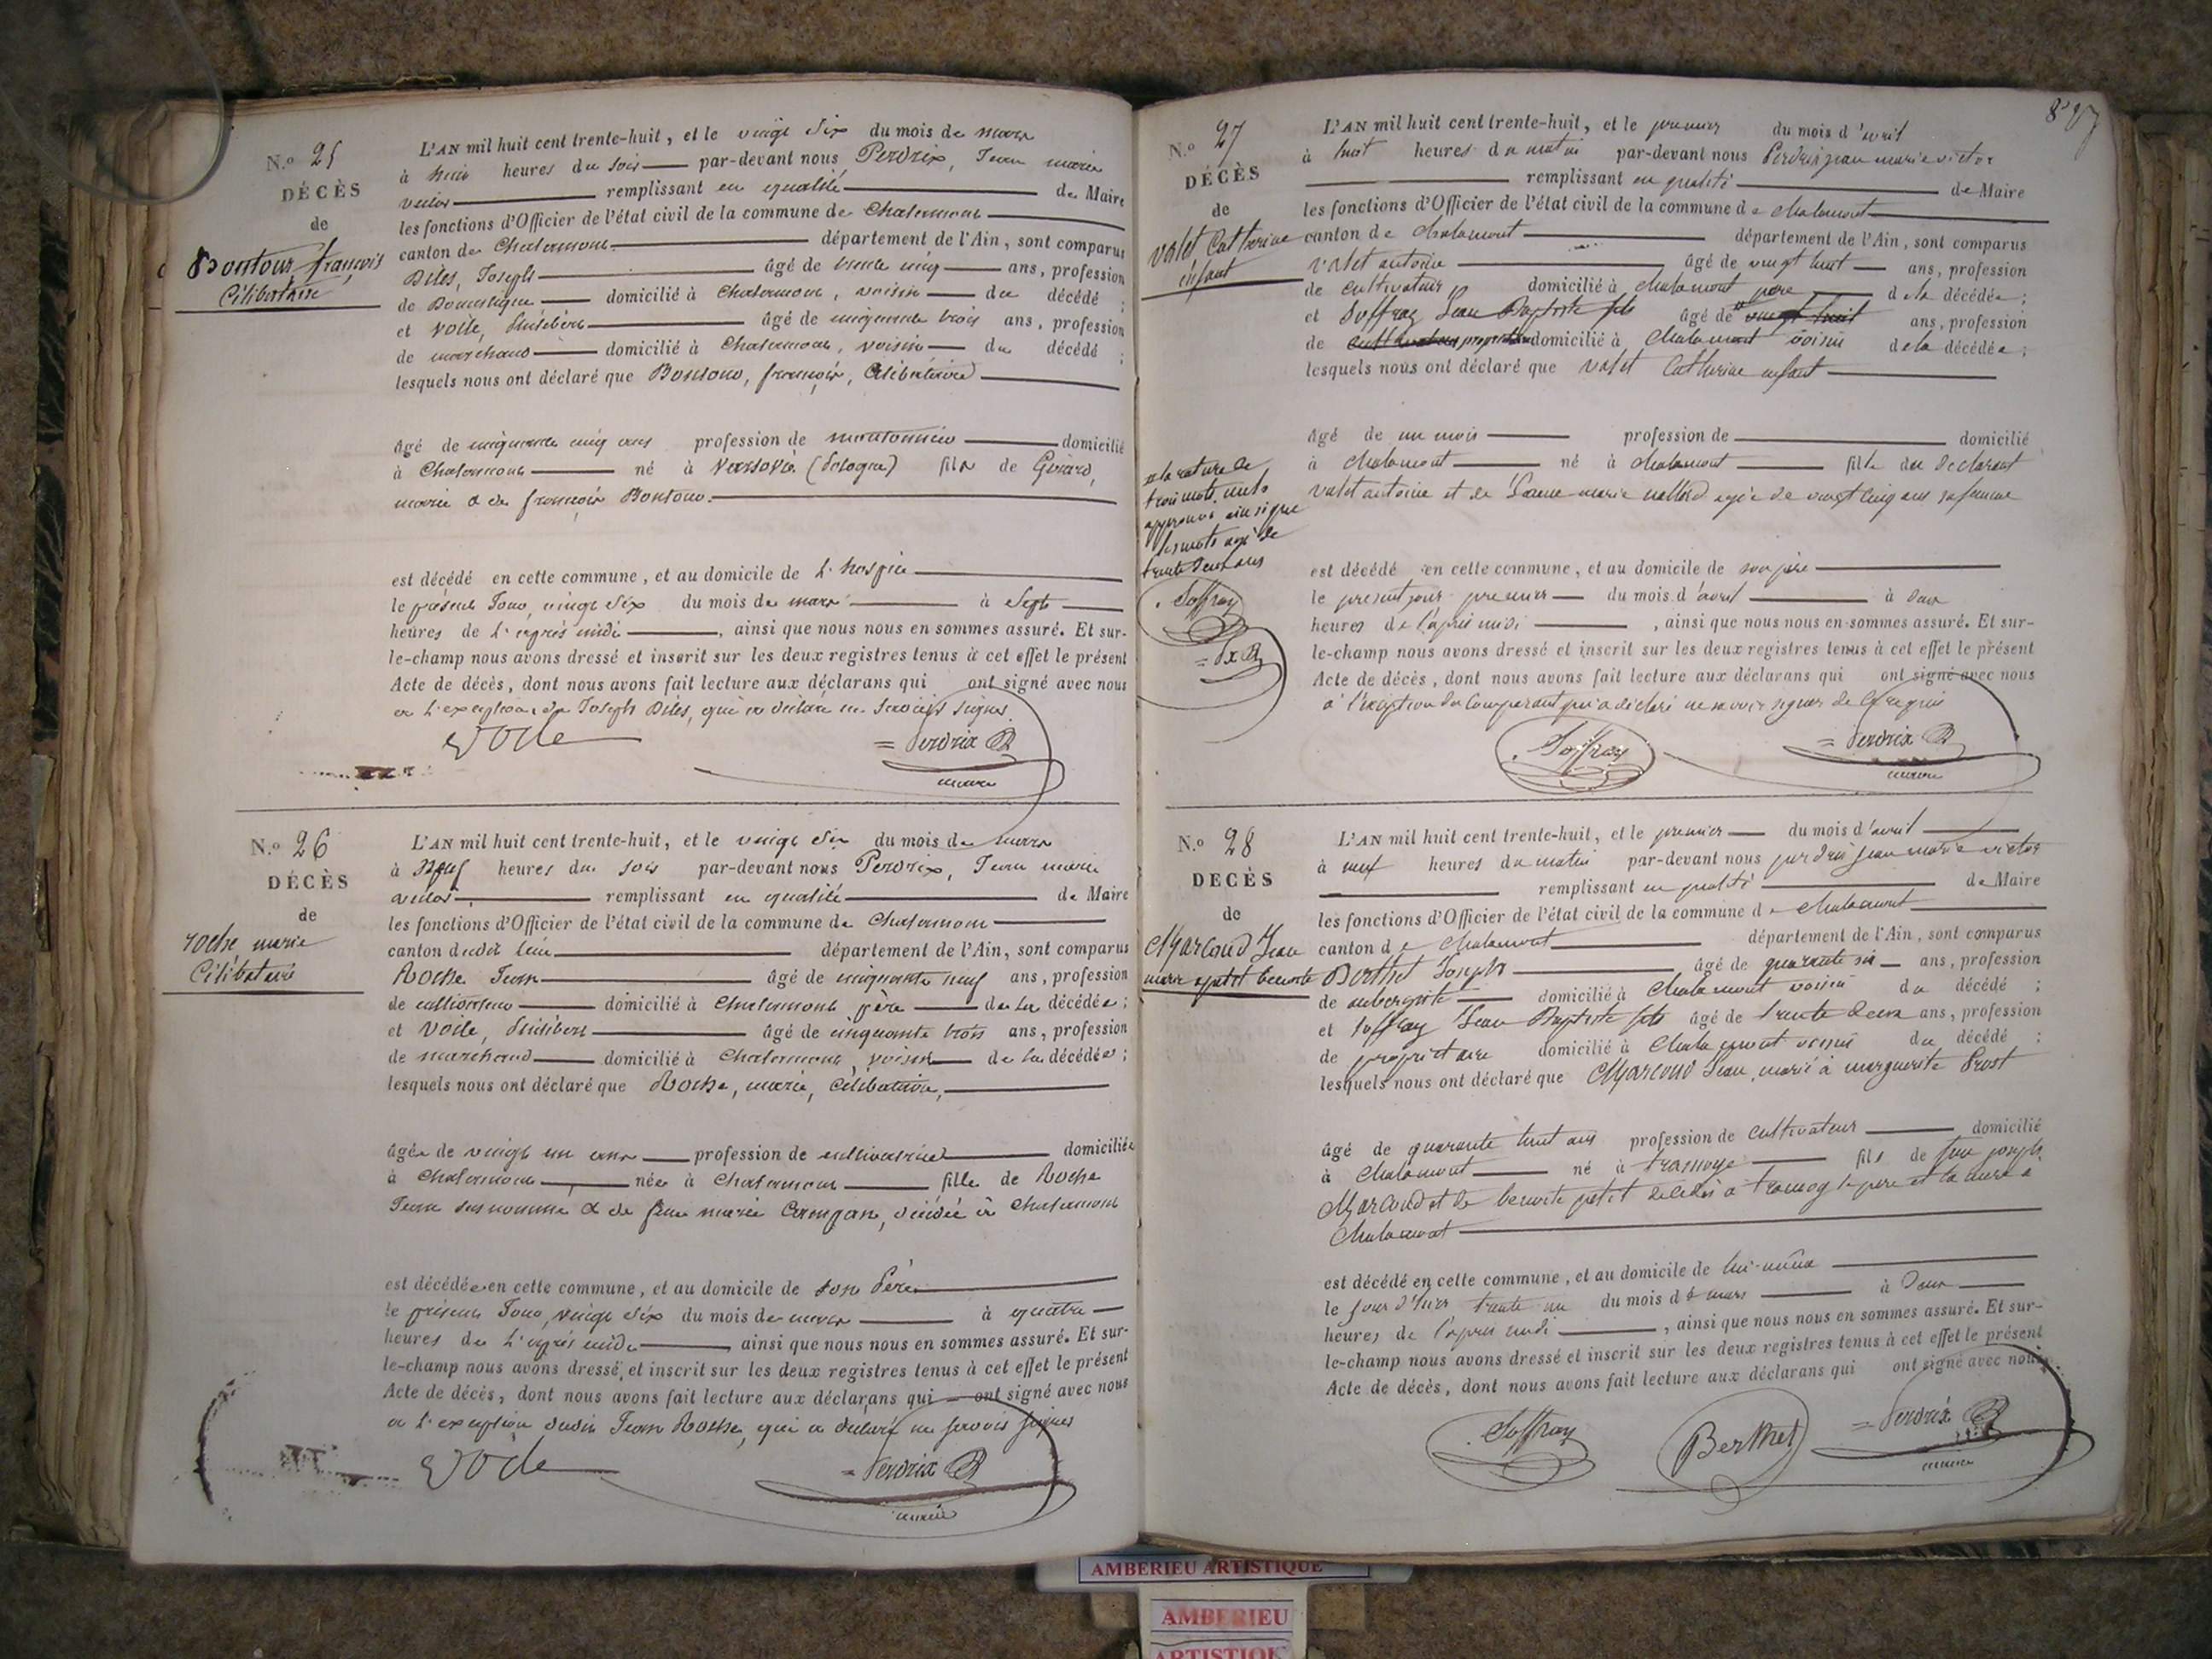 N.o 25
DÉCÈS
de
Bontour françois
Célibataire
L'AN mil huit cent trente-huit, et le vingt Six du mois de mars
à huit heures du soir par-devant nous Perdrix, Jean marie
victor remplissant en qualité de Maire
les fonctions d'Officier de l'état civil de la commune de Chalamont
canton de Chalamont département de l'Ain, sont comparus
Joseph âgé de trente cinq ans, profession
de Domestique domicilié à Chalamont, voisin du décédé ;
et âgé de cinquante trois ans, profession
de marchand domicilié à Chalamont, voisin du décédé ;
lesquels nous ont déclaré que françois, Célibataire
âgé de cinquante cinq ans profession de domicilié
à Chalamont né à Varsovie (Pologne) fils de
marie & de françois
est décédé en cette commune, et au domicile de L'hospice
le présent Jour, vingt Six du mois de mars à Sept
heures de L'après midi , ainsi que nous nous en sommes assuré. Et sur-
le-champ nous avons dressé et inscrit sur les deux registres tenus à cet effet le présent
Acte de décès, dont nous avons fait lecture aux déclarans qui ont signé avec nous
à L'exception de Joseph qui a déclaré ne Savoir signer
= Perdrix
maire
N.o 26
DÉCÈS
de
roche marie
Célibataire
L'AN mil huit cent trente-huit, et le vingt Six du mois de mars
à Neuf heures du soir par-devant nous Perdrix, Jean marie
victor, remplissant en qualité de Maire
les fonctions d'Officier de l'état civil de la commune de Chalamont
canton dudit lieu département de l'Ain, sont comparus
Roche Jean âgé de cinquante neuf ans, profession
de cultivateur domicilié à Chalamont père de la décédée ;
et âgé de cinquante trois ans, profession
de marchand domicilié à Chalamont, voisin de la décédée ;
lesquels nous ont déclaré que Roche, marie, célibataire,
âgée de vingt un ans profession de cultivatrice domiciliée
à Chalamont née à Chalamont fille de Roche
Jean susnommé & de feue marie décédée à Chalamont
est décédée en cette commune, et au domicile de son Père
le présent Jour, vingt Six du mois de mars à quatre
heures de L'après midi ainsi que nous nous en sommes assuré. Et sur-
le-champ nous avons dressé et inscrit sur les deux registres tenus à cet effet le présent
Acte de décès, dont nous avons fait lecture aux déclarans qui ont signé avec nous
à L'exception dudit Jean Roche, qui a déclaré ne savoir signer
= Perdrix
maire
N.o 27
DÉCÈS
de
valet Catherine
enfant
L'AN mil huit cent trente-huit, et le premier du mois d'avril
à huit heures du matin par-devant nous Perdrix jean marie victor
remplissant en qualité de Maire
les fonctions d'Officier de l'état civil de la commune de chalamont
canton de chalamont département de l'Ain, sont comparus
valet antoine âgé de vingt huit ans, profession
de cultivateur domicilié à chalamont père de la décédée ;
et Soffray Jean Baptiste fils âgé de vingt huit ans, profession
de domicilié à chalamont voisin de la décédée ;
lesquels nous ont déclaré que valet Catherine enfant
âgé de un mois profession de domicilié
à chalamont né à chalamont fille du déclarant
valet antoine et de marie agée de vingt cinq ans sa femme
la rature de
trois mots nuls
approuvé ainsi que
les mots agé de
trente deux ans
Soffray
est décédé en cette commune, et au domicile de son père
le présent jour premier du mois d'avril à deux
heures de l'après midi , ainsi que nous nous en sommes assuré. Et sur-
le-champ nous avons dressé et inscrit sur les deux registres tenus à cet effet le présent
Acte de décès, dont nous avons fait lecture aux déclarans qui ont signé avec nous
à l'exception du comparant qui a déclaré ne savoir signer de ce requis
Soffray
= Perdrix
maire
N.o 28
DECÈS
de
Marcoud Jean
L'AN mil huit cent trente-huit, et le premier du mois d'avril
à neuf heures du matin par-devant nous perdrix jean marie victor
remplissant en qualité de Maire
les fonctions d'Officier de l'état civil de la commune de chalamont
canton de chalamont département de l'Ain, sont comparus
Berthet Joseph âgé de quarante six ans, profession
de aubergiste domicilié à chalamont voisin du décédé ;
et Soffray Jean Baptiste fils âgé de trente deux ans, profession
de propriétaire domicilié à chalamont voisin du décédé ;
lesquels nous ont déclaré que Marcoud Jean, marié à marguerite Prost
âgé de quarante huit ans profession de cultivateur domicilié
à chalamont né à tramoye fils de feu joseph
Marcoud et de benoite petit décédés à tramoy le père et la mère à
chalamont
est décédé en cette commune, et au domicile de lui-même
le jour d'hier trente un du mois de mars à deux
heures de l'après midi , ainsi que nous nous en sommes assuré. Et sur-
le-champ nous avons dressé et inscrit sur les deux registres tenus à cet effet le présent
Acte de décès, dont nous avons fait lecture aux déclarans qui ont signé avec nous
Soffray
Berthet
= Perdrix
maire
AMBERIEU ARTISTIQUE
AMBERIEU
ARTISTIQUE